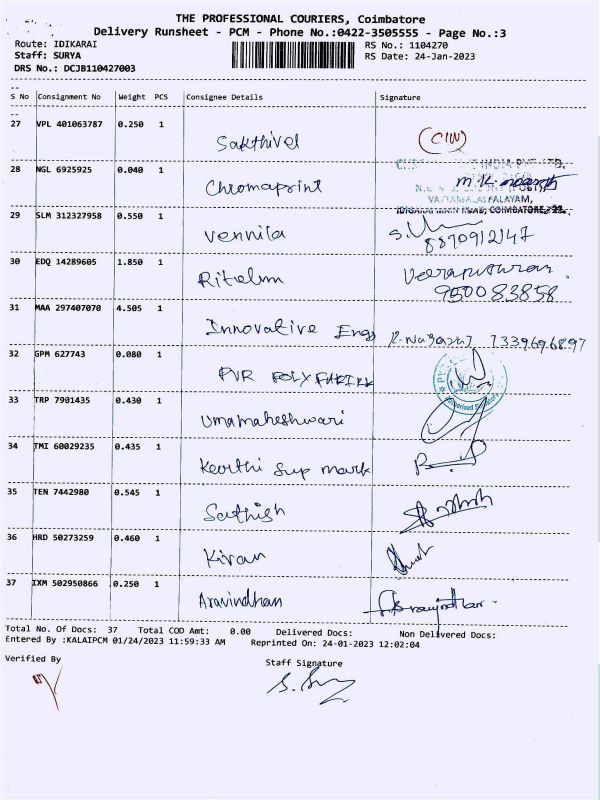 THE PROFESSIONAL COURIERS, Coimbatore
Delivery Runsheet - PCM - Phone No.:0422-3505555 - Page No.:3
Route: IDIKARAI
RS No.: 1104270
Staff: SURYA
RS Date: 24-Jan-2023
DRS No.: DCJB110427003
S No Consignment No Weight PCS Consignee Details Signature
27 VPL 401063787 0.250 1
Sakthivel
28 NGL 6925925 0.040 1
Chromaprint
29 SLM 312327958 0.550 1
Vennila
8870912147
30 EDQ 14289605 1.850 1
Ritelm
950083858
31 MAA 297407070 4.505 1
Innovative Engg 7339696897
32 GPM 627743 0.080 1
PVR POLYFABRIK
33 TRP 7901435 0.430 1
Umamaheshwari
34 TMI 60029235 0.435 1
Keerthi Sup mark
35 TEN 7442980 0.545 1
Sathish
36 HRD 50273259 0.460 1
Kiran
37 IXM 502950866 0.250 1
Aravindhan
Total No. Of Docs: 37 Total COD Amt: 0.00 Delivered Docs: Non Delivered Docs:
Entered By :KALAIPCM 01/24/2023 11:59:33 AM Reprinted On: 24-01-2023 12:02:04
Verified By
Staff Signature